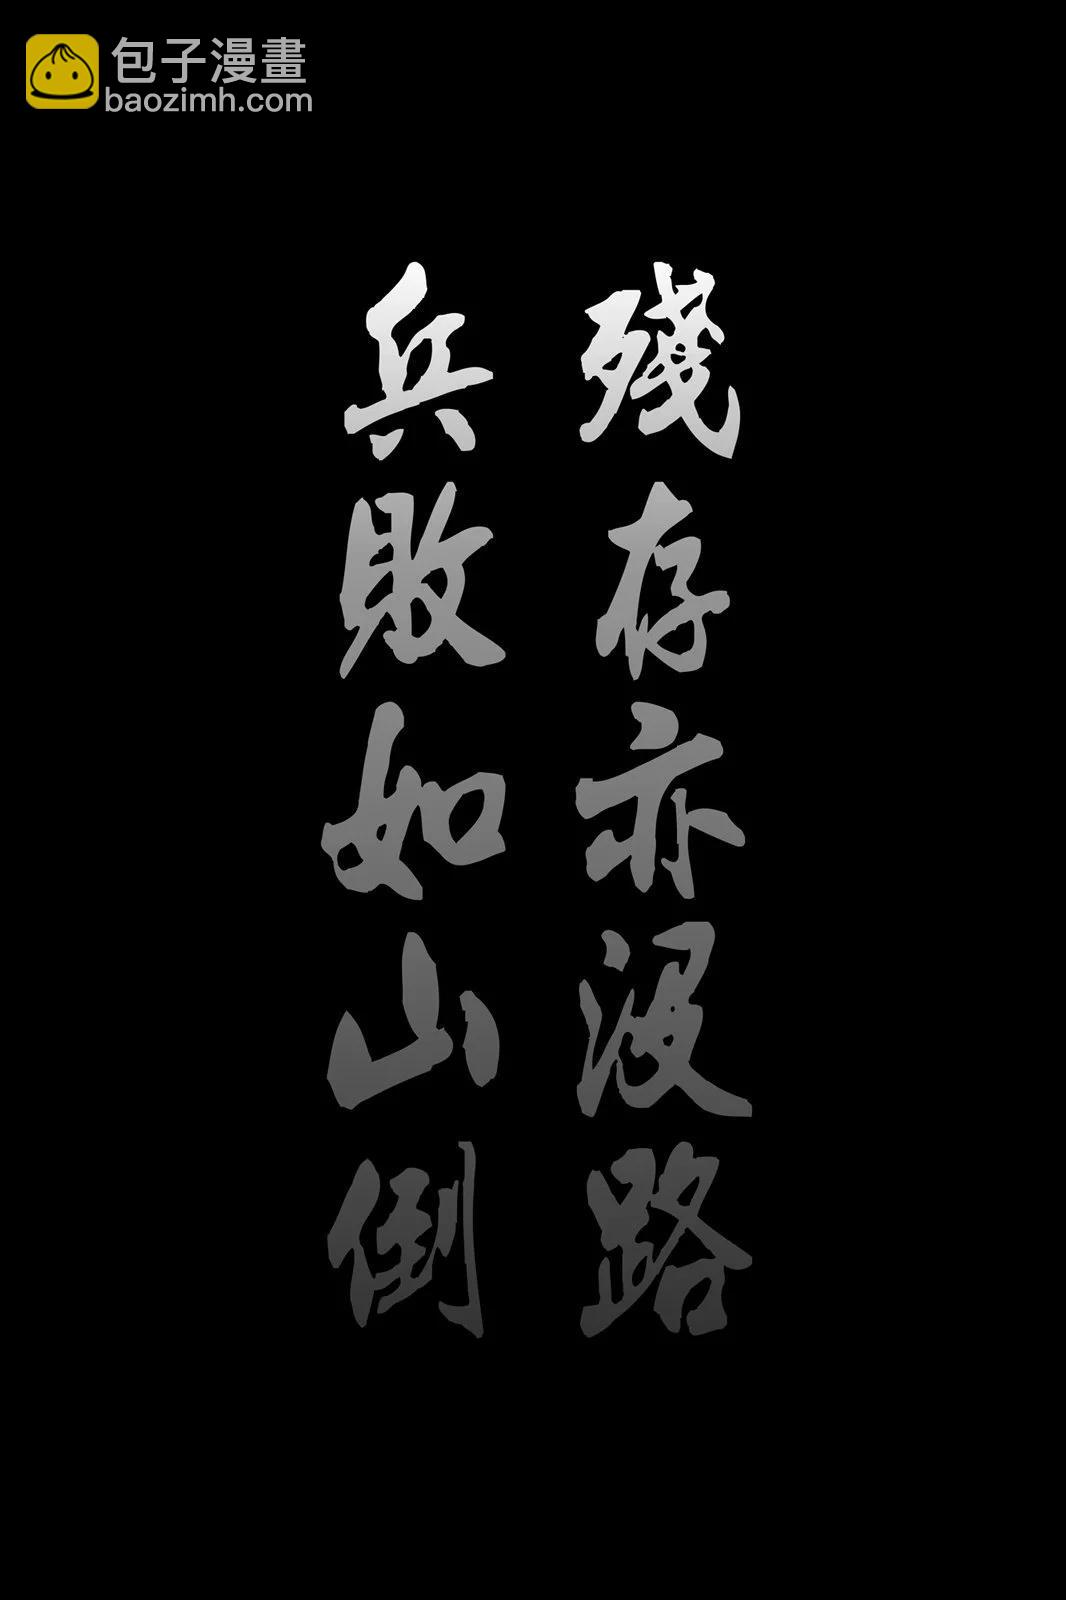 包子漫畫
baozimh.com
殘存亦沒路
兵敗如山倒